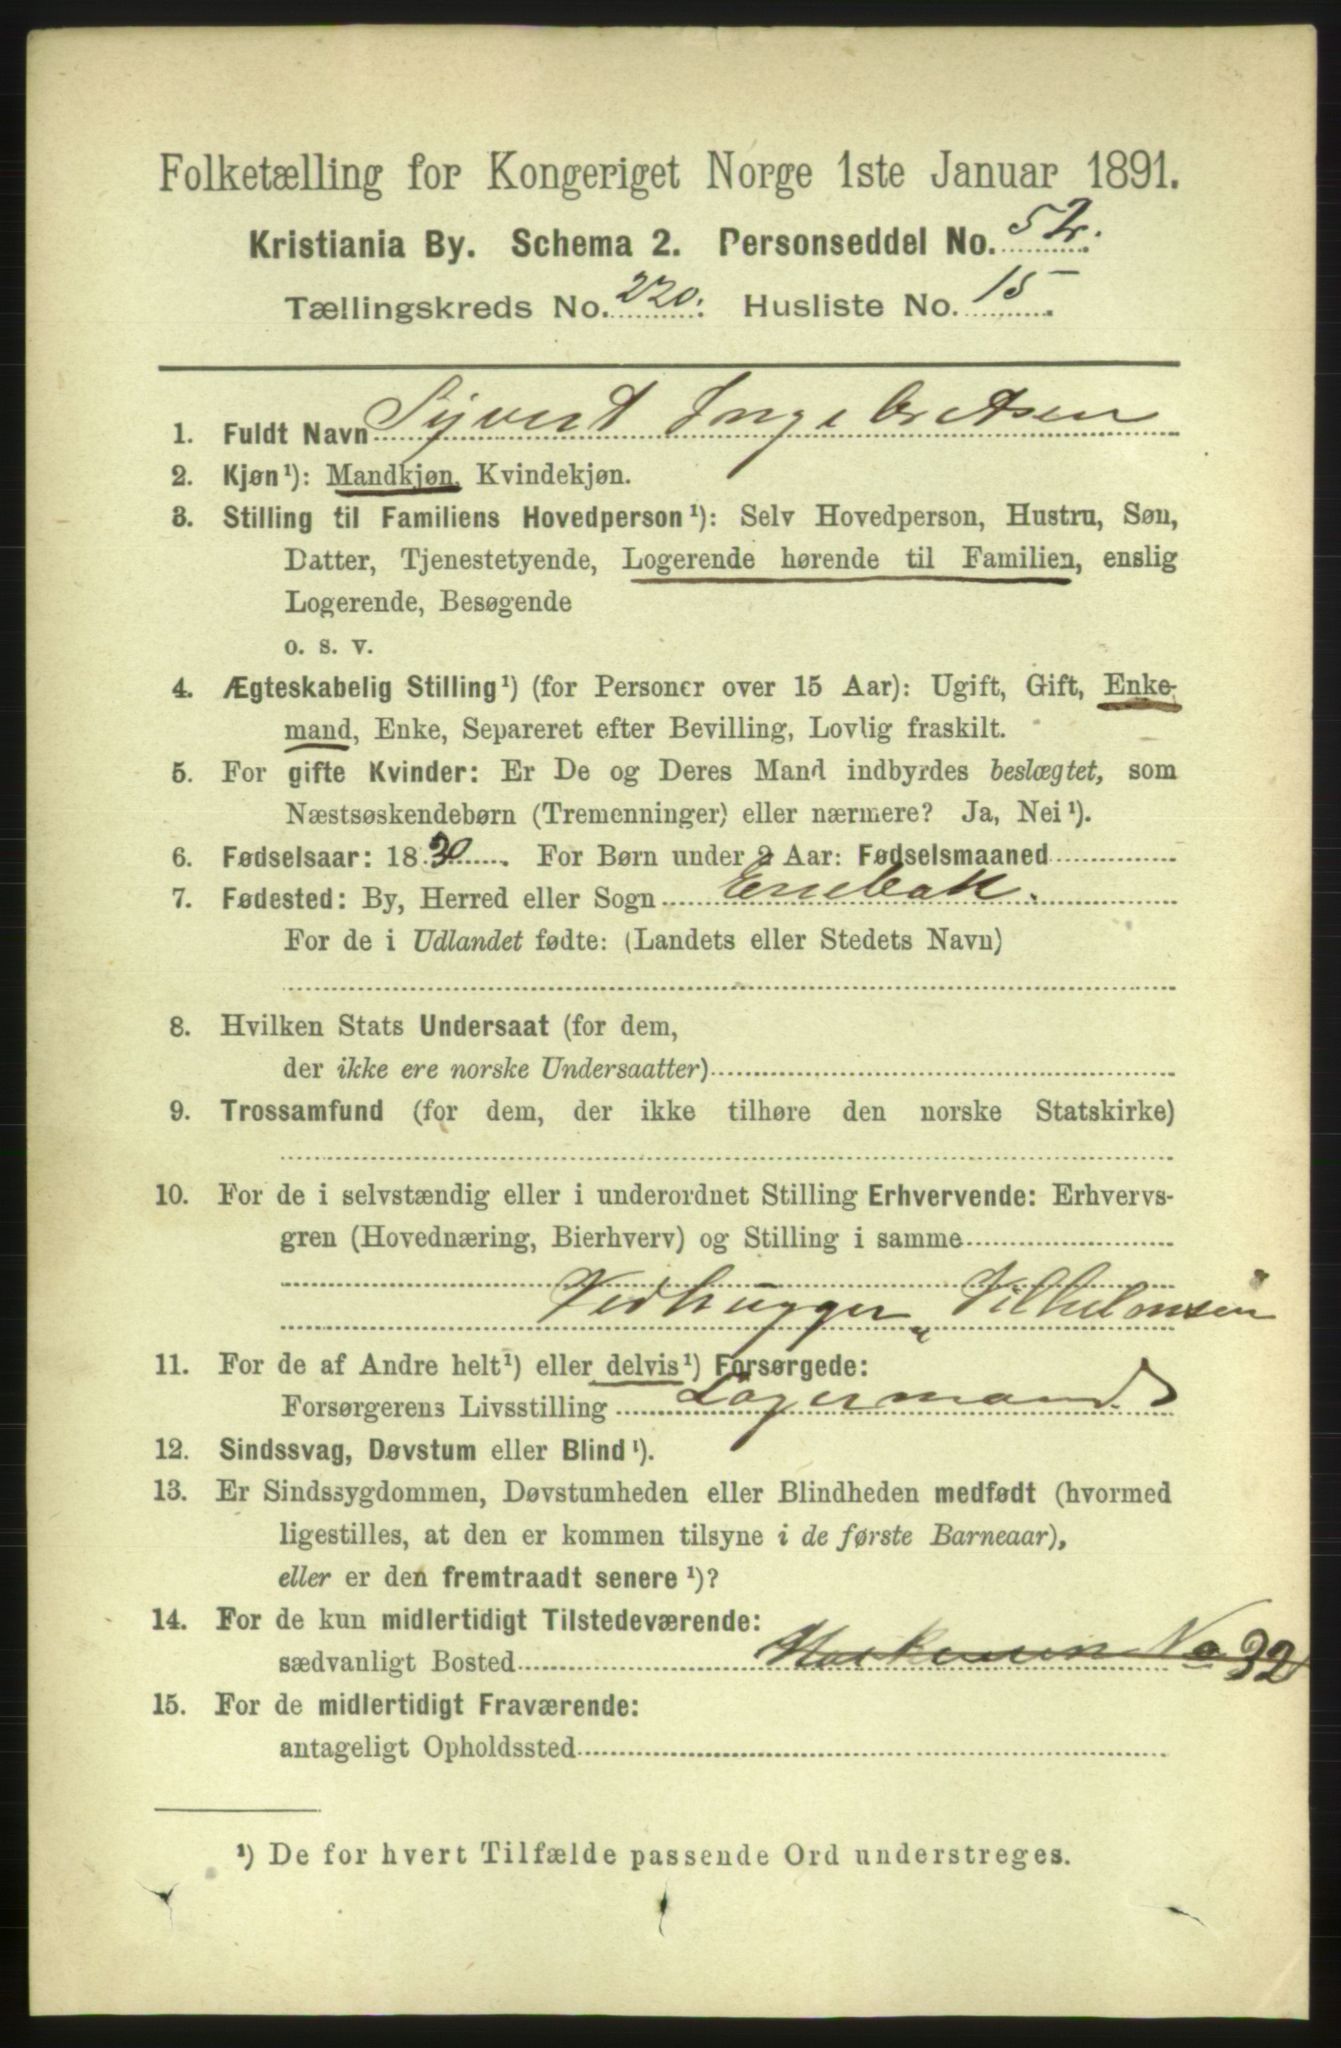 Folketælling for Kongeriget Norge 1ste Januar 1891.
Kristiania By. Schema 2. Personseddel No. 52.
Tællingskreds No. 220. Husliste No. 15
1. Fuldt Navn Syvert Ingebretsen
2. Kjøn¹): Mandkjøn, Kvindekjøn.
3. Stilling til Familiens Hovedperson¹): Selv Hovedperson, Hustru, Søn,
Datter, Tjenestetyende, Logerende hørende til Familien, enslig
Logerende, Besøgende
o. s. v.
4. Ægteskabelig Stilling¹) (for Personer over 15 Aar): Ugift, Gift, Enke-
mand, Enke, Separeret efter Bevilling, Lovlig fraskilt.
5. For gifte Kvinder: Er De og Deres Mand indbyrdes beslægtet, som
Næstsøskendebørn (Tremenninger) eller nærmere? Ja, Nei¹).
6. Fødselsaar: 1830. For Børn under 2 Aar: Fødselsmaaned
7. Fødested: By, Herred eller Sogn Enebak.
For de i Udlandet fødte: (Landets eller Stedets Navn)
8. Hvilken Stats Undersaat (for dem,
der ikke ere norske Undersaatter)
9. Trossamfund (for dem, der ikke tilhøre den norske Statskirke)
10. For de i selvstændig eller i underordnet Stilling Erhvervende: Erhvervs-
gren (Hovednæring, Bierhverv) og Stilling i samme
Vedhugger „ Vilhelmsen
11. For de af Andre helt¹) eller delvis¹) Forsørgede:
Forsørgerens Livsstilling Lagermand
12. Sindssvag, Døvstum eller Blind¹).
13. Er Sindssygdommen, Døvstumheden eller Blindheden medfødt (hvormed
ligestilles, at den er kommen tilsyne i de første Barneaar),
eller er den fremtraadt senere¹)?
14. For de kun midlertidigt Tilstedeværende:
sædvanligt Bosted No 32
15. For de midlertidigt Fraværende:
antageligt Opholdssted
¹) De for hvert Tilfælde passende Ord understreges.